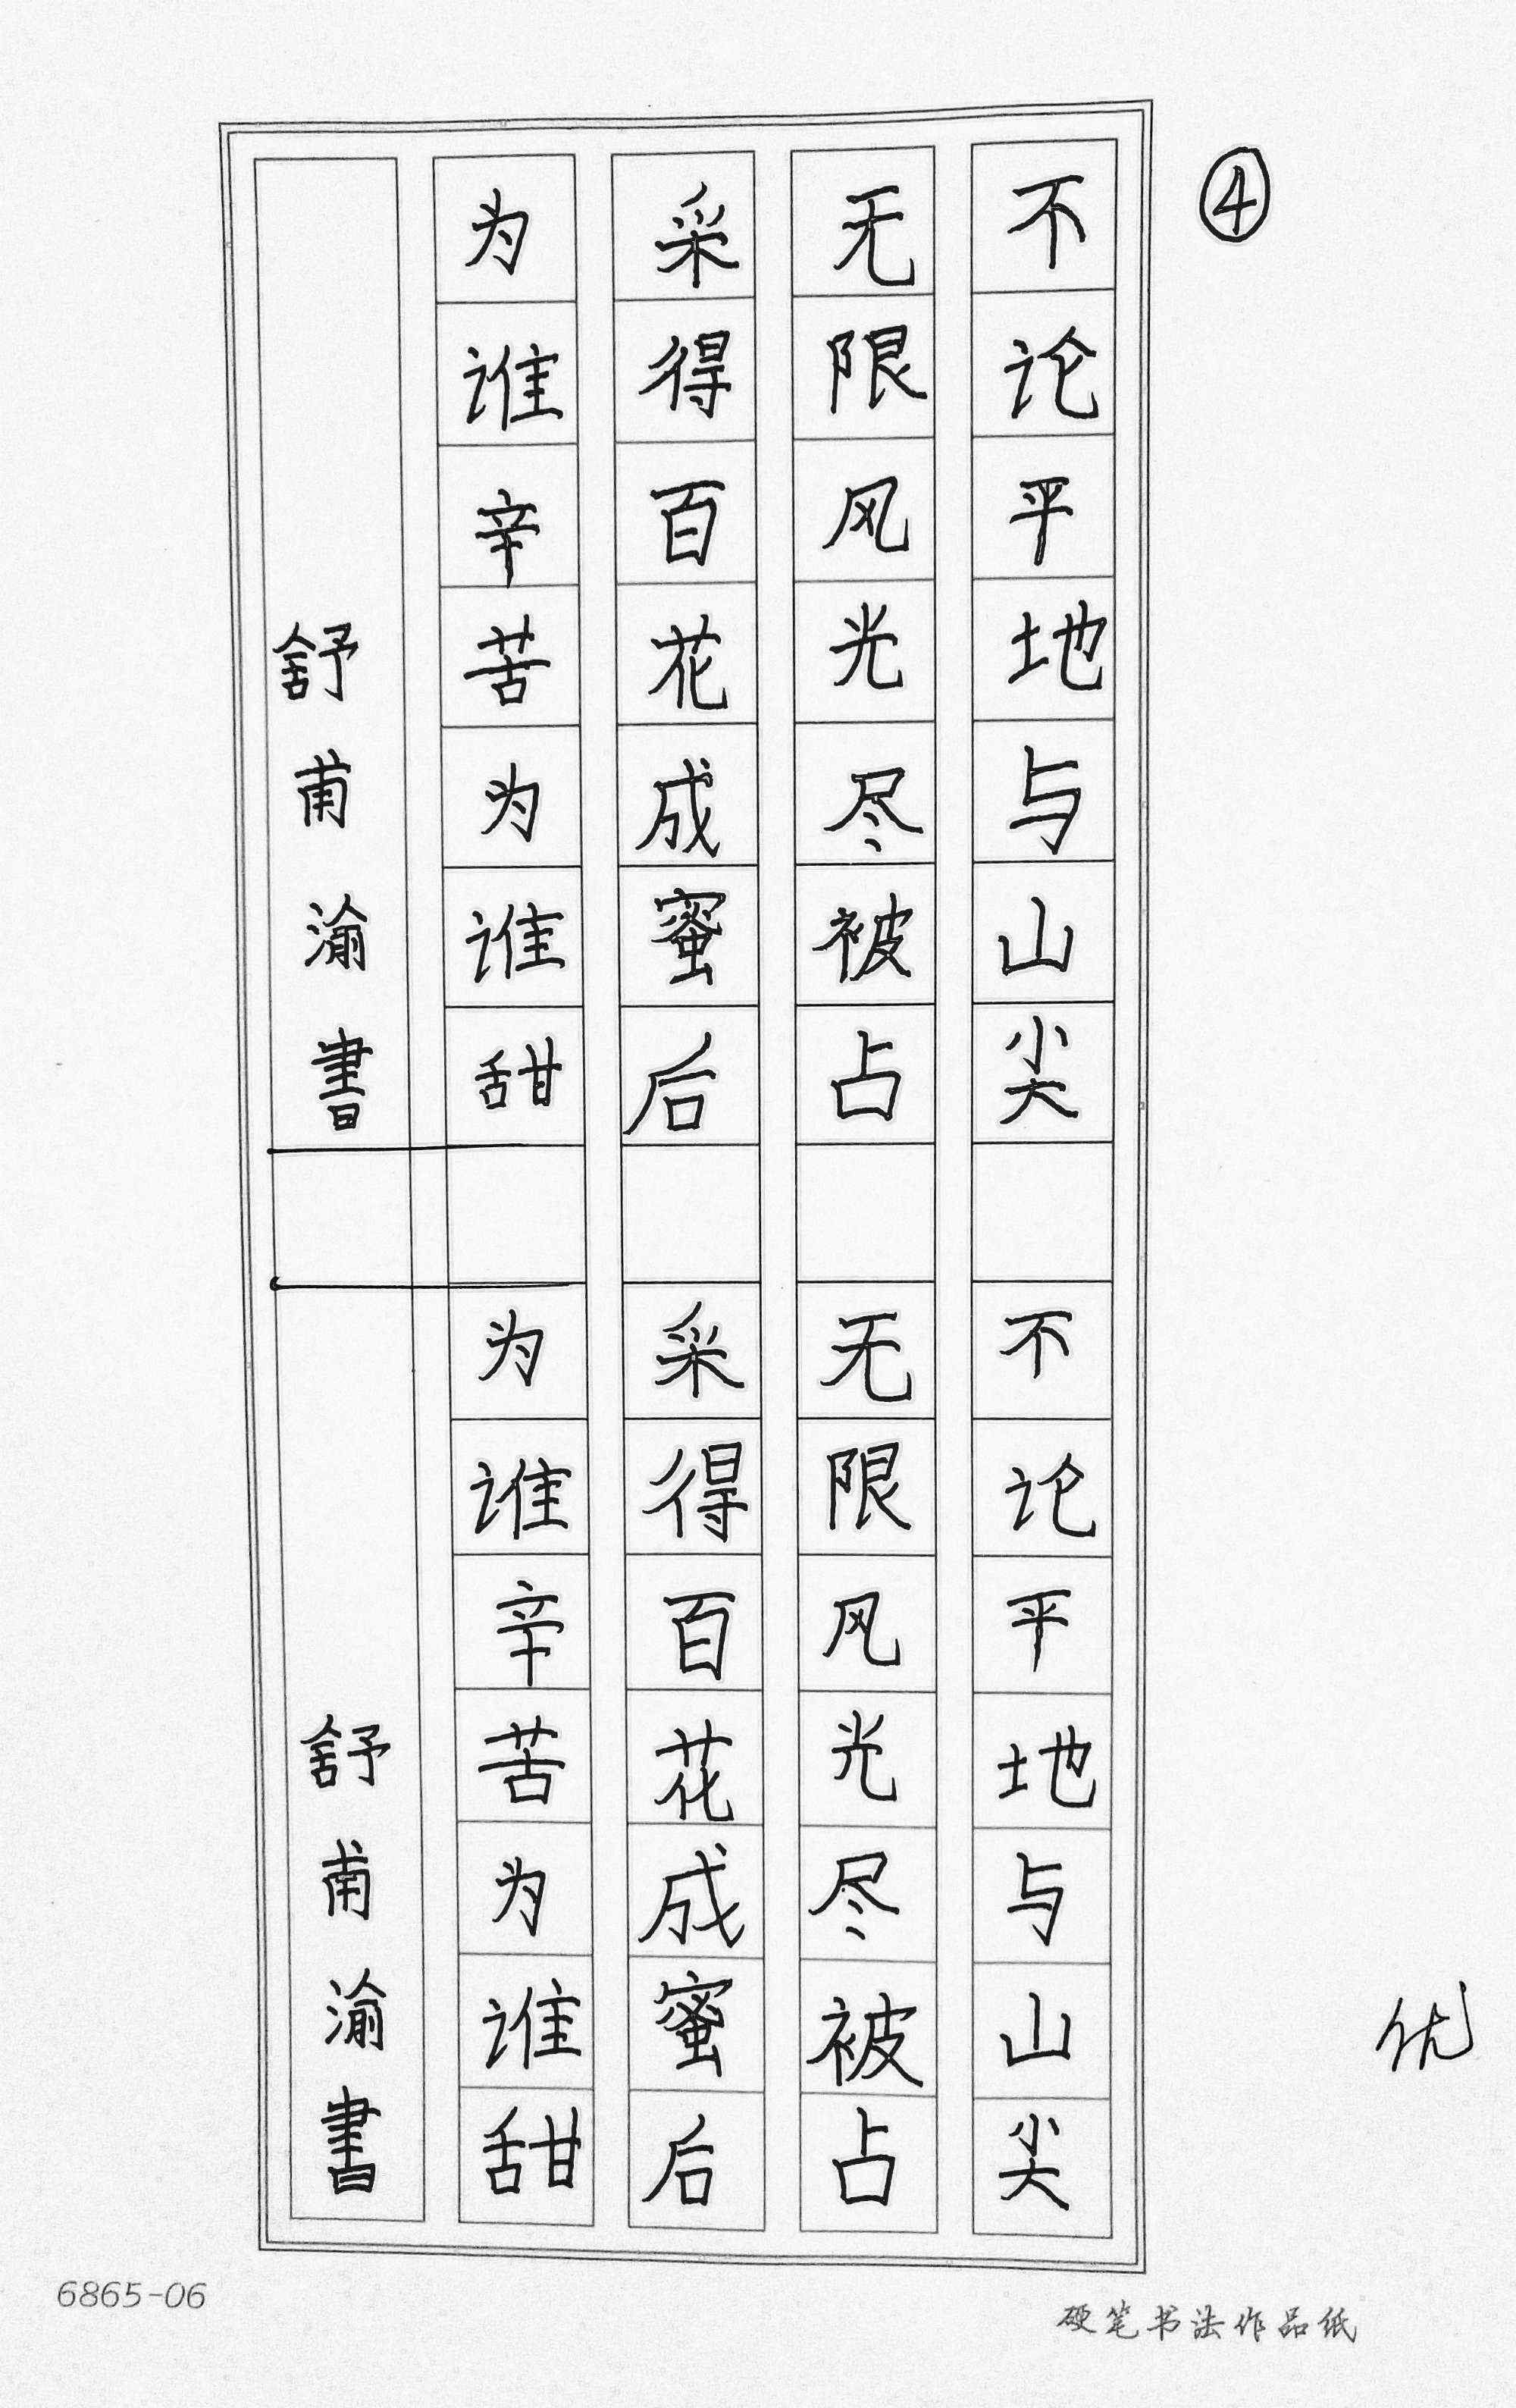 ④
不论平地与山尖
无限风光尽被占
采得百花成蜜后
为谁辛苦为谁甜
舒甫渝書
不论平地与山尖
无限风光尽被占
采得百花成蜜后
为谁辛苦为谁甜
舒甫渝書
优
6865-06
硬笔书法作品纸